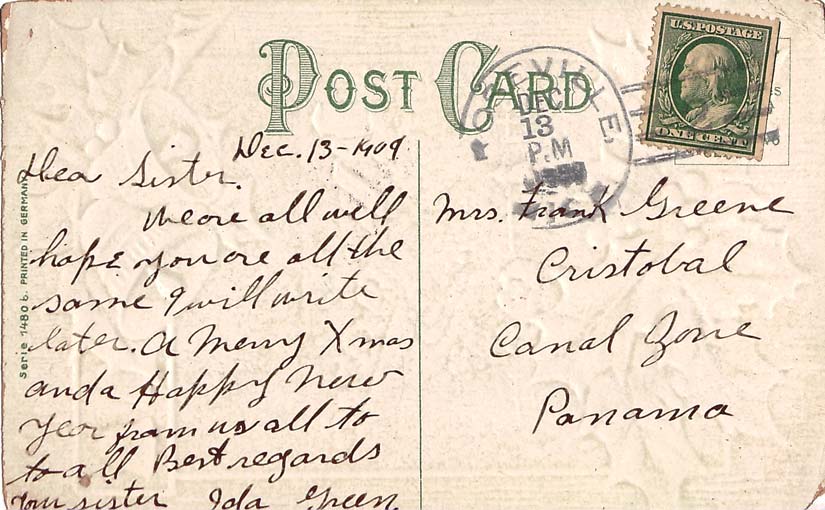 POST CARD
U.S. POSTAGE
ONE CENT
DEC
13
P.M
Dec. 13-1909
Dea Sister.
We are all well
hope you are all the
same I will write
later. A Merry Xmas
and a Happy New
Year from us all to
to all Best regards
Your sister Ida Green.
Mrs. Frank Greene
Cristobal
Canal Zone
Panama
Serie 1480 b. PRINTED IN GERMANY